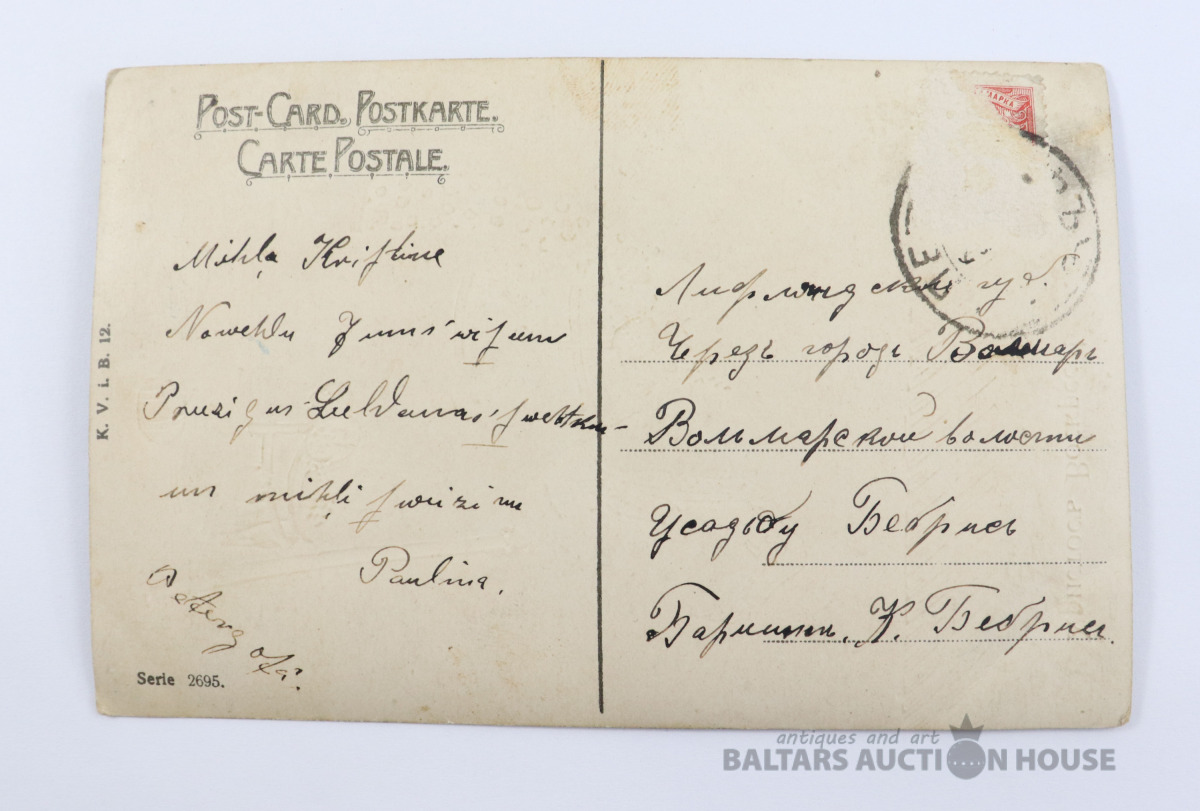 POST-CARD. POSTKARTE.
CARTE POSTALE.
Mihļa Kristine
Nowehlu Jums wisem
Preezigus Leeldenas swehtkus
un mihļi sweizinu
Paulina.
K. V. i. B. 12.
Serie 2695.
МАРКА
Лифляндская губ.
Черезъ городъ Вольмаръ
Вольмарской волости
Усадьбу Бебрисъ
Барышни. К. Бебрисъ.
antiques and art
BALTARS AUCTION HOUSE